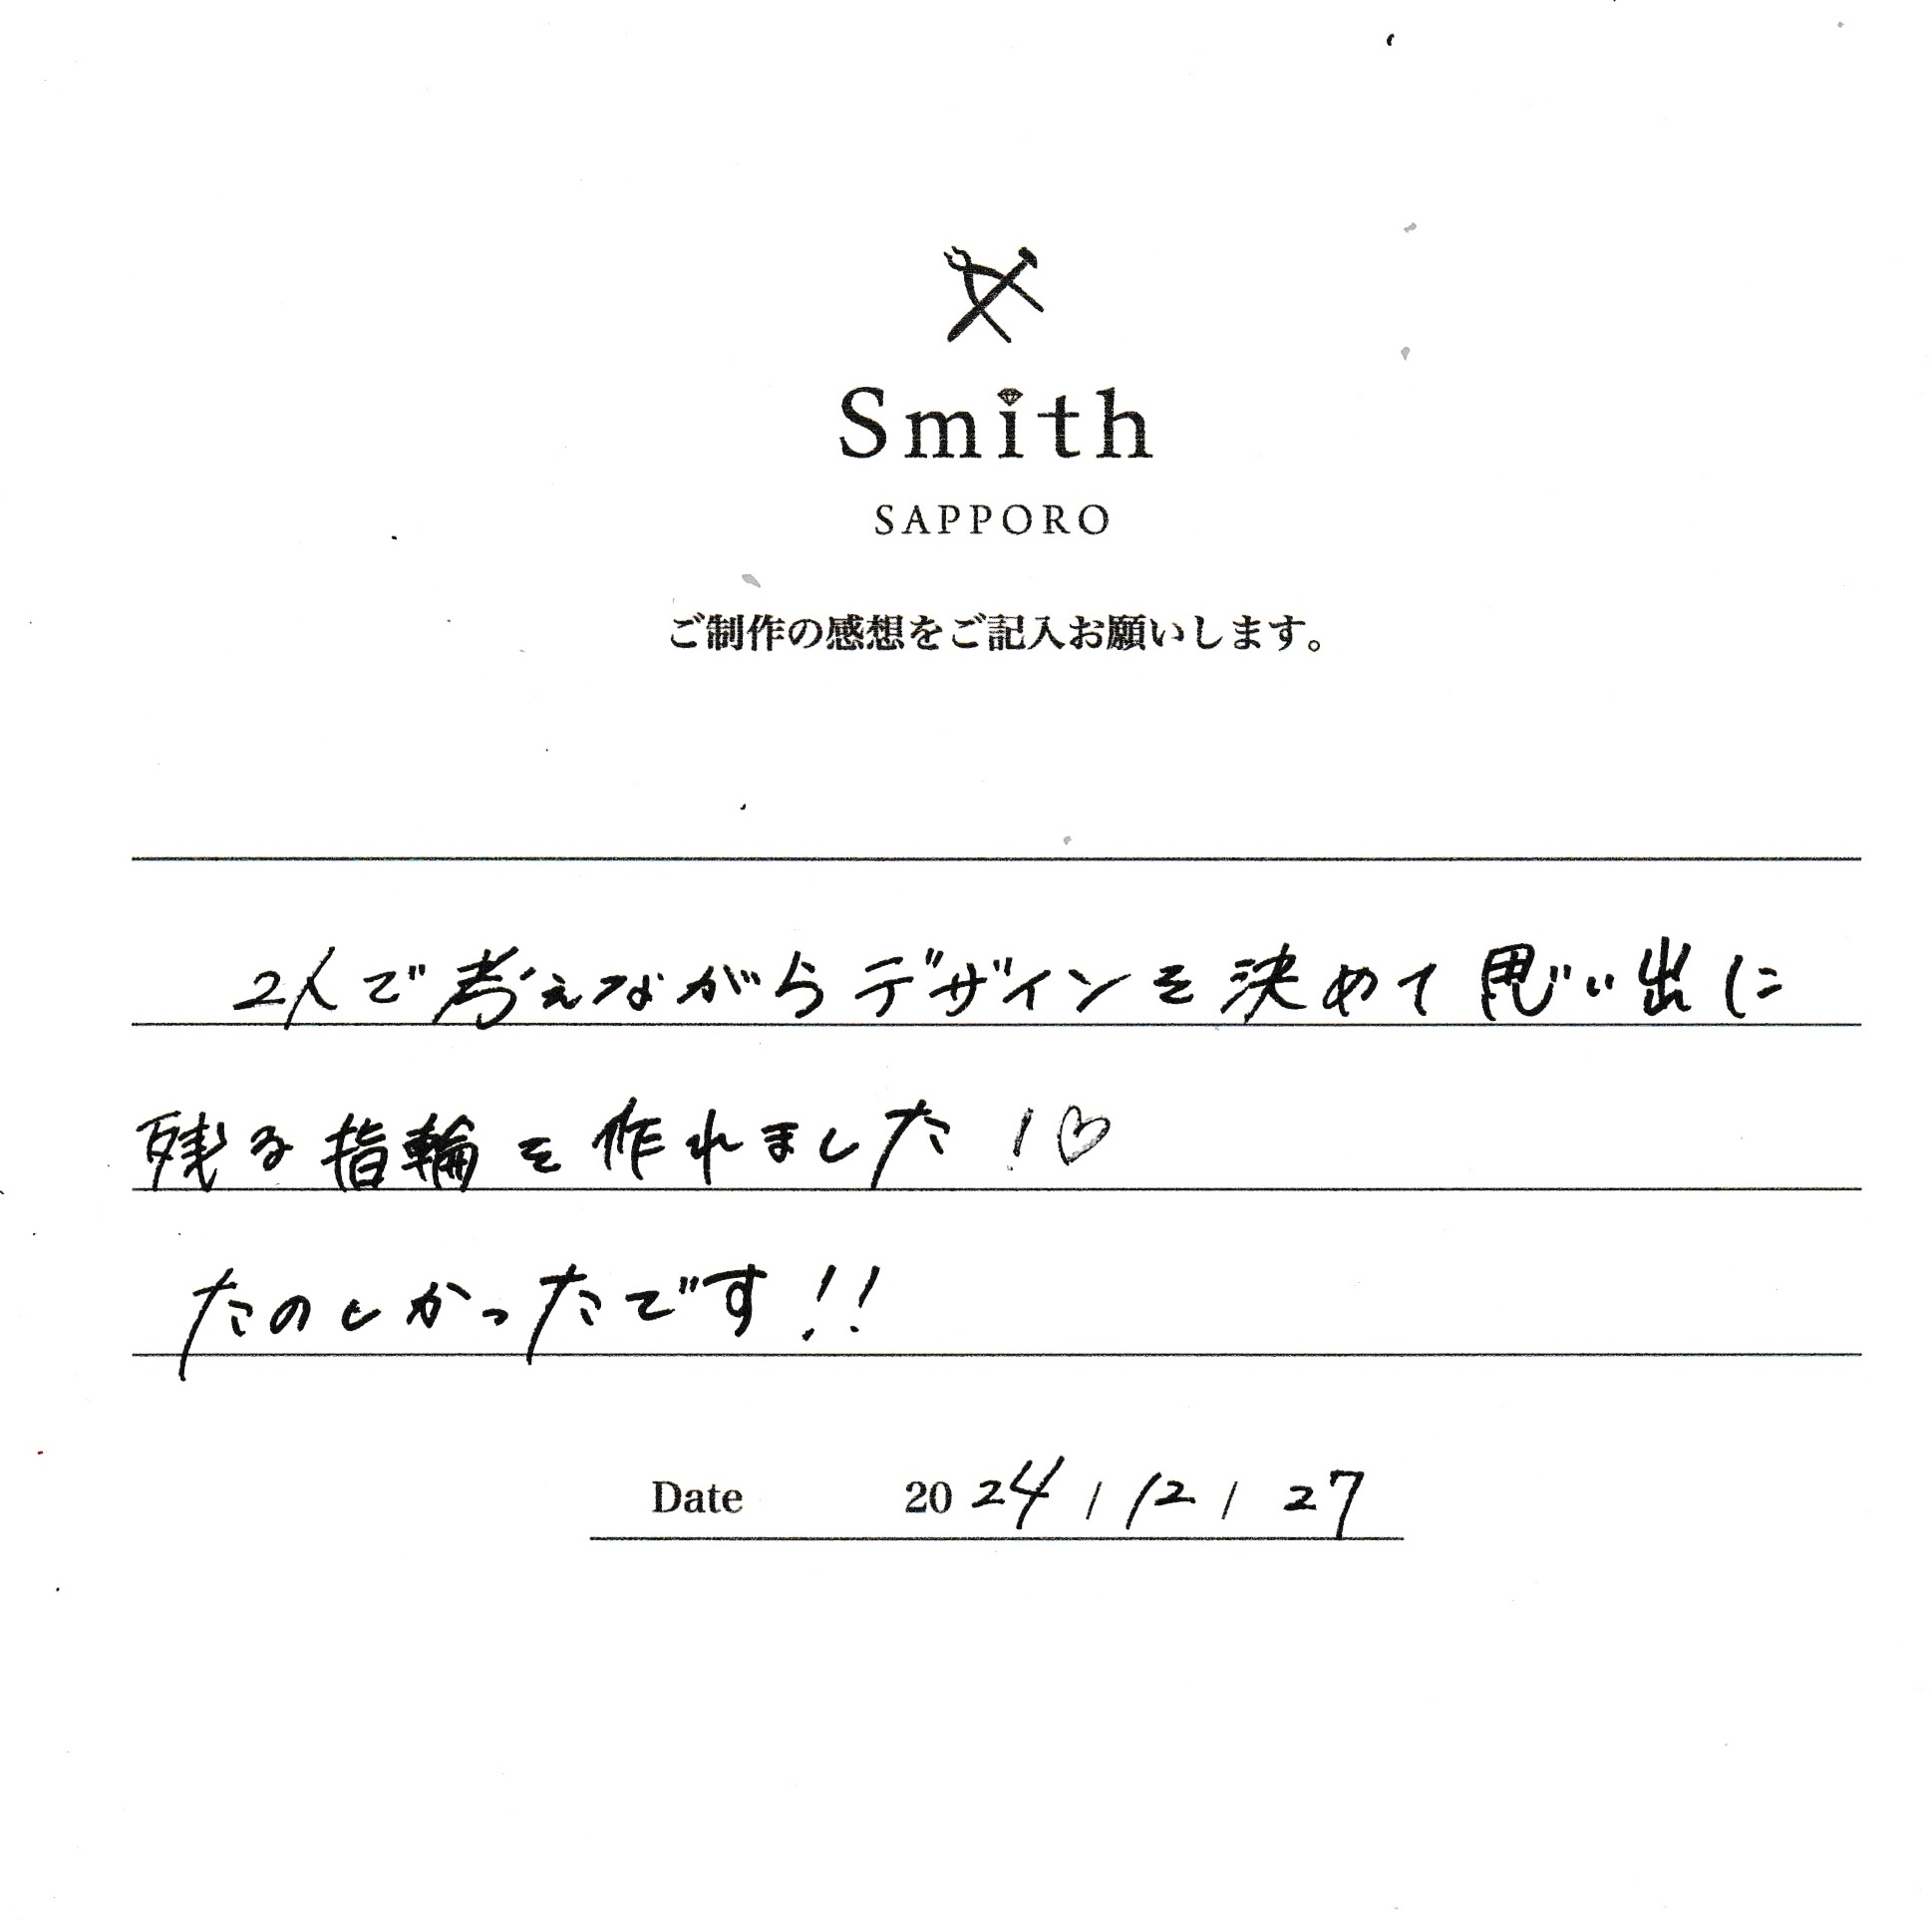 Smith
SAPPORO
ご制作の感想をご記入お願いします。
2人で考えながらデザインを決めて思い出に
残る指輪を作れました!♡
たのしかったです!!
Date 2024/12/27